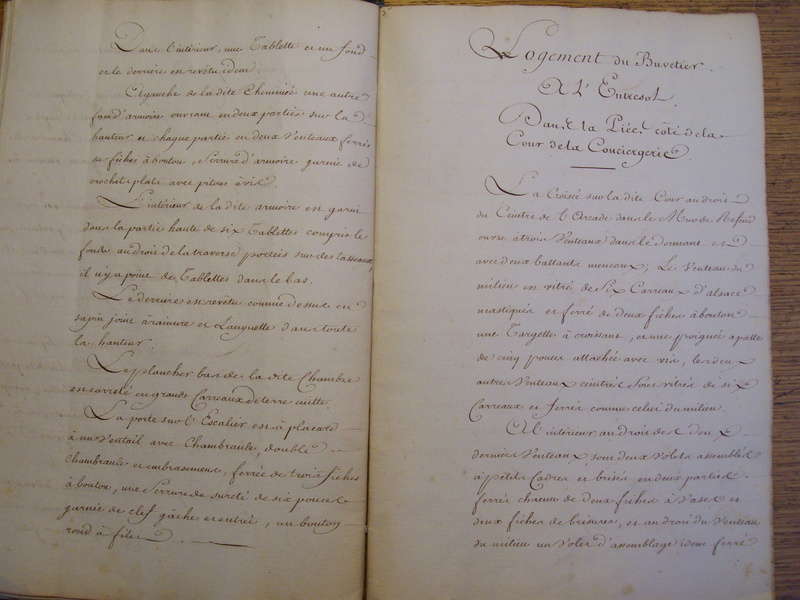 Dans l'intérieur, une Tablette et un fond
et le derriere est revêtu idem.
A gauche de la dite Cheminée une autre
fond d'armoire ouvrant en deux parties sur la
hauteur et chaque partie en deux Venteaux ferrés
de fiches à bouton, Serrure d'armoire garnie de
crochet plats avec pitons à vis.
L'intérieur de la dite armoire est garni
dans la partie haute de six Tablettes compris le
fond au droit de la traverse portées sur des tasseaux,
il n'y a point de Tablettes dans le bas.
Le derriere est revêtu comme dessus en
sapin joint à rainure et Languette dans toute
la hauteur.
Le plancher bas de la dite Chambre
est carrelé en grands Carreaux de terre cuitte.
La porte sur l'Escalier est à placard
à un Ventail avec Chambranle, double
Chambranle et embrasement, ferrée de trois fiches
à bouton, une Serrure de sureté de six pouces
garnie de clef gâche et entrée, un bouton
rond à filet
Logement du Buvetier.
A L'Entresol.
Dans la Piéce côté de la
Cour de la Conciergerie.
La Croisée sur la dite Cour au droit
du Ceintre de l'Arcade dans le Mur de Refend
ouvre à trois Venteaux dans le dormant et
avec deux battants meneaux; Le Venteau du
milieu est vitré de Six Carreaux d'alsace
mastiqués et ferré de deux fiches à bouton
une Targette à croissant, et une poignée a patte
de cinq pouces attachée avec vis, les deux
autres Venteaux ceintrés Sont vitrés de six
Carreaux et ferrés comme celui du milieu.
A l'intérieur au droit des deux
derniers Venteaux sont deux Volets assemblés
à petits Cadres et brisés en deux parties
ferrés chacun de deux fiches à Vases et
deux fiches de brisures, et au droit du Venteau
du milieu un Volet d'assemblage idem ferré